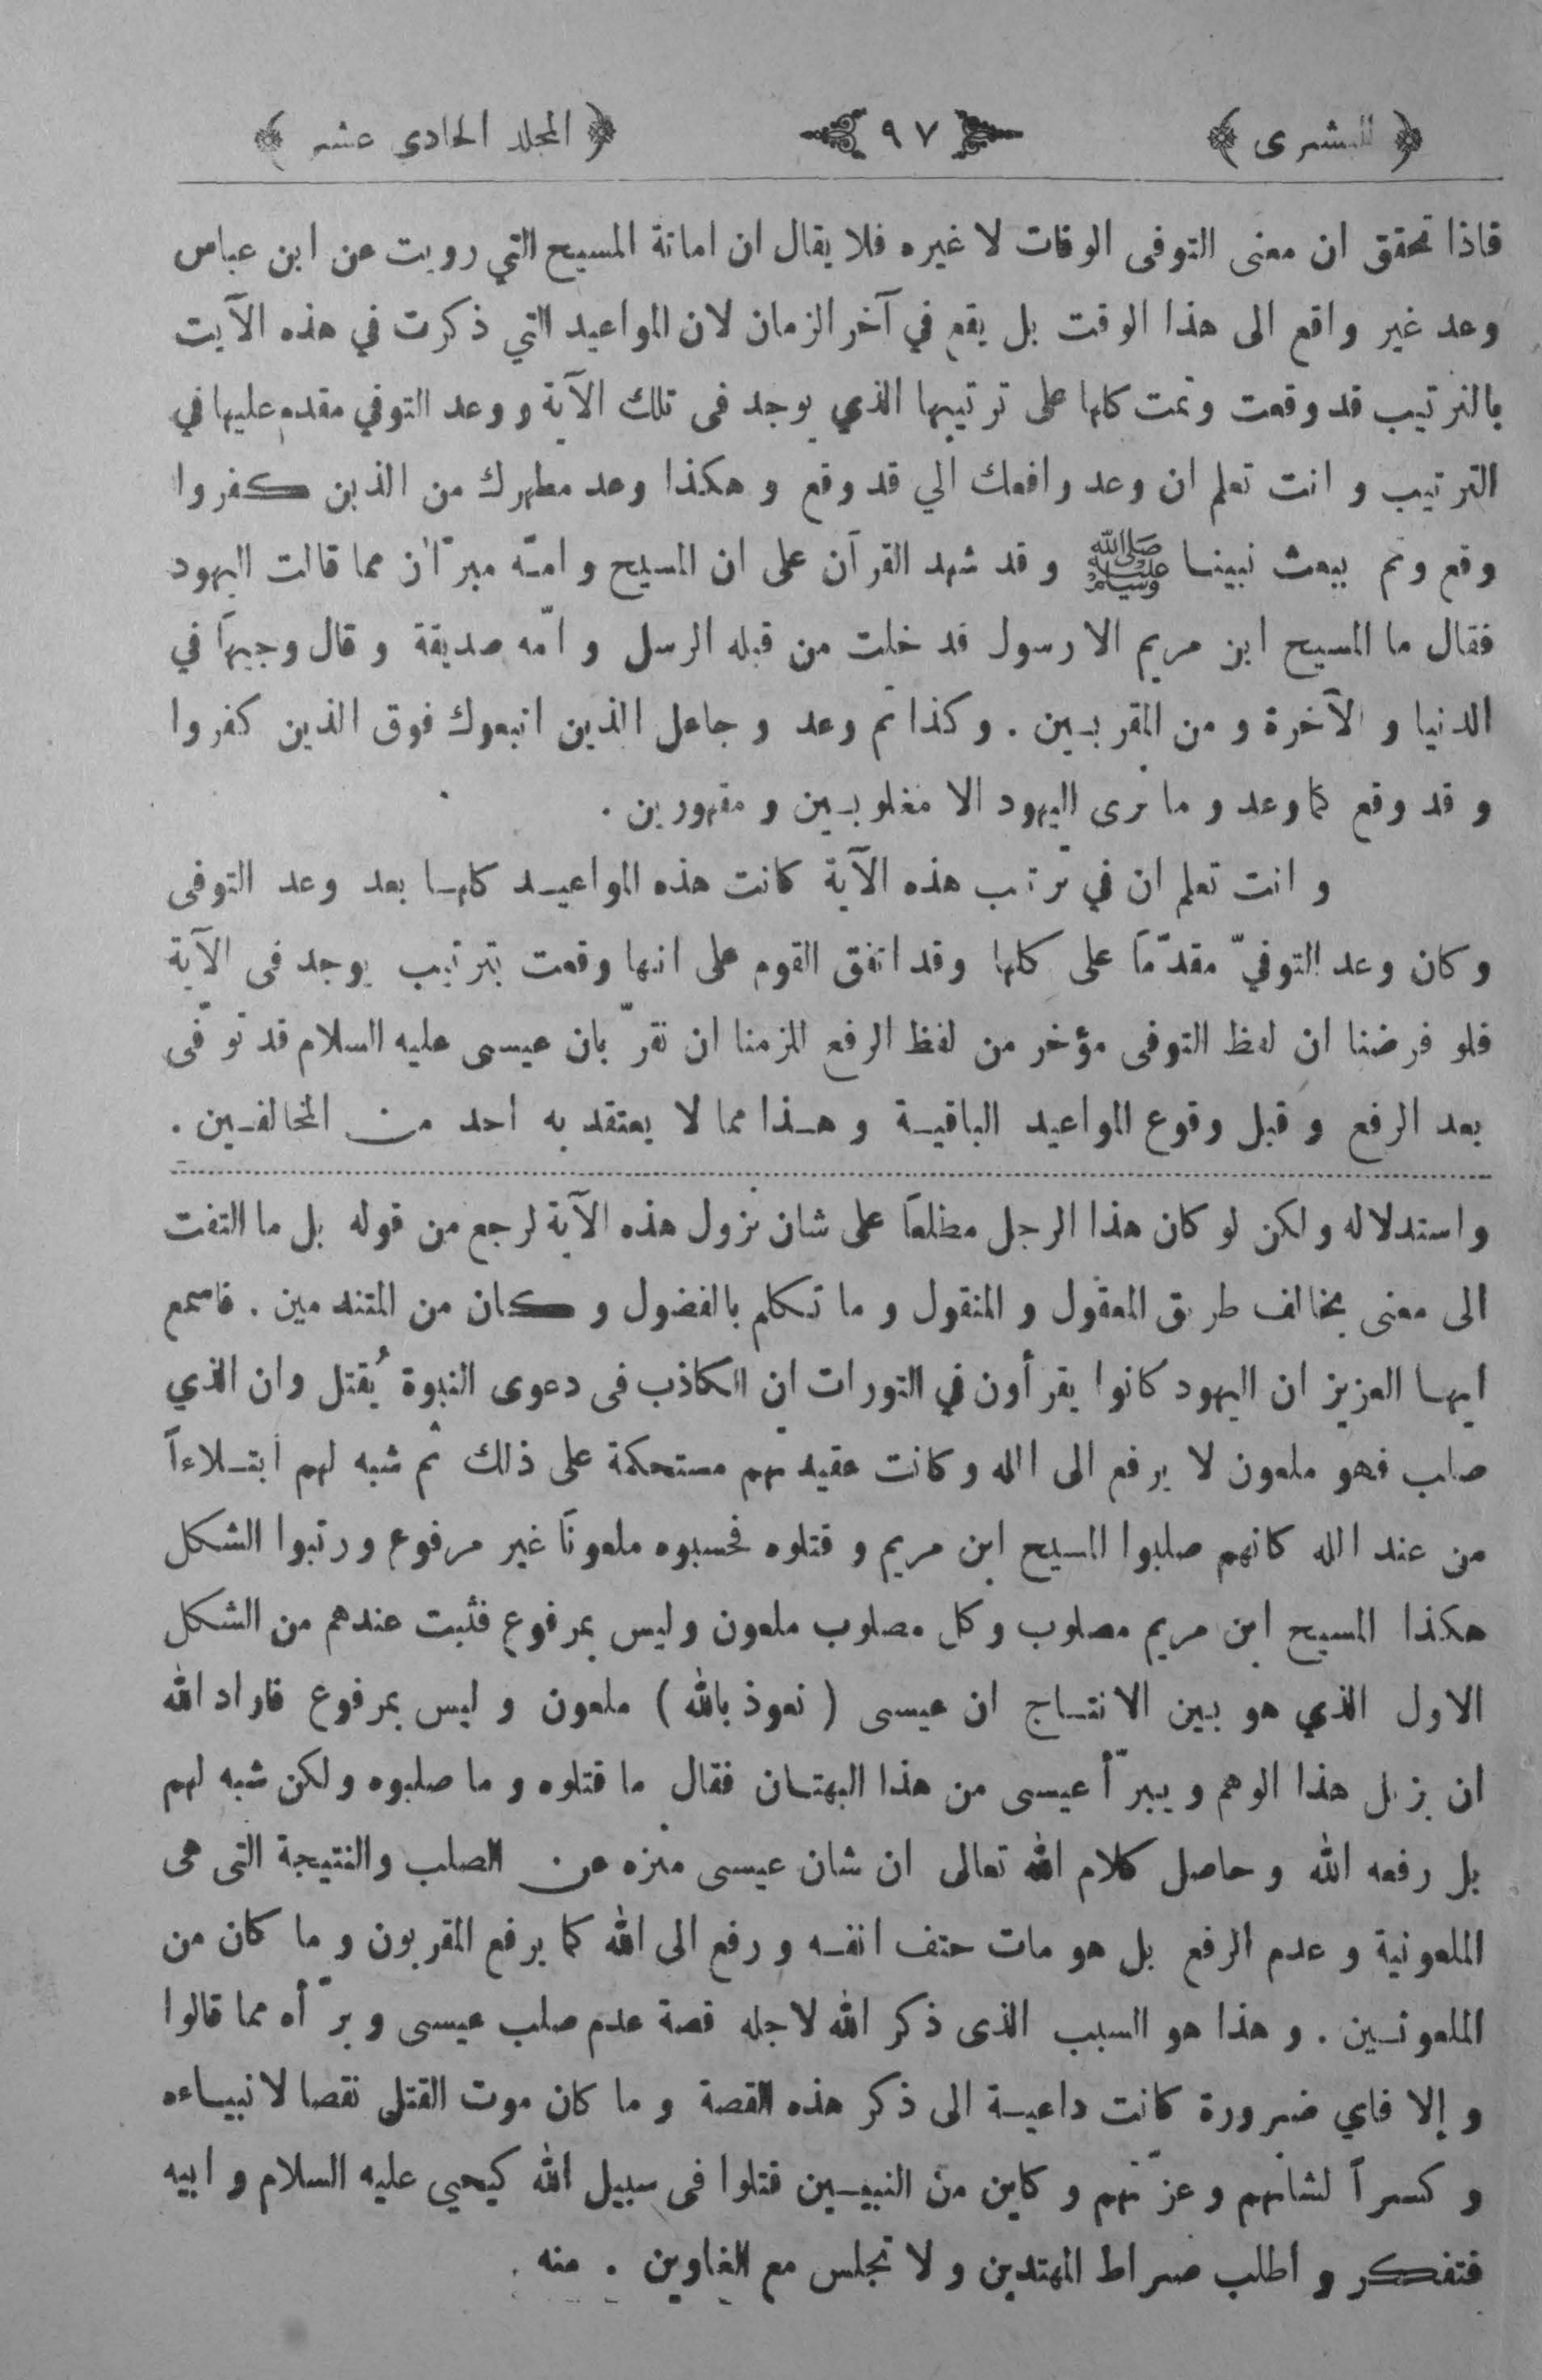 ﴿ البشرى ﴾ ٩٧ ﴿ المجلد الحادى عشر ﴾
فاذا تحقق ان معنى التوفى الوفات لا غيره فلا يقال ان اماتة المسيح التي رويت عن ابن عباس
وعد غير واقع الى هذا الوقت بل يقع في آخر الزمان لان المواعيد التي ذكرت في هذه الآيت
بالترتيب قد وقعت وتمت كلها على ترتيبها الذي يوجد فى تلك الآية و وعد التوفي مقدم عليها في
الترتيب و انت تعلم ان وعد رافعك الي قد وقع و هكذا وعد مطهرك من الذين كفروا
وقع وتم ببعث نبينا ﷺ و قد شهد القرآن على ان المسيح و امّه مبرّآن مما قالت اليهود
فقال ما المسيح ابن مريم الا رسول قد خلت من قبله الرسل و امّه صديقة و قال وجيهاً في
الدنيا و الآخرة و من المقربين . و كذا تم وعد و جاعل الذين اتبعوك فوق الذين كفروا
و قد وقع كما وعد و ما نرى اليهود الا مغلوبين و مقهورين .
و انت تعلم ان في ترتب هذه الآية كانت هذه المواعيد كلها بعد وعد التوفى
و كان وعد التوفيّ مقدّماً على كلها وقد اتفق القوم على انها وقعت بترتيب يوجد فى الآية
فلو فرضنا ان لفظ التوفى مؤخر من لفظ الرفع للزمنا ان نقرّ بان عيسى عليه السلام قد توفّى
بعد الرفع و قبل وقوع المواعيد الباقية و هذا مما لا يعتقد به احد من المخالفين .
و استدلاله و لكن لو كان هذا الرجل مطلعاً على شان نزول هذه الآية لرجع من قوله بل ما التفت
الى معنى يخالف طريق المعقول و المنقول و ما تكلم بالفضول و كان من المتندمين . فاسمع
ايها العزيز ان اليهود كانوا يقرأون في التورات ان الكاذب فى دعوى النبوة يُقتل وان الذي
صلب فهو ملعون لا يرفع الى الله و كانت عقيدتهم مستحكمة على ذلك ثم شبه لهم ابتلاءاً
من عند الله كانهم صلبوا المسيح ابن مريم و قتلوه فحسبوه ملعوناً غير مرفوع و رتبوا الشكل
هكذا المسيح ابن مريم مصلوب و كل مصلوب ملعون وليس بمرفوع فثبت عندهم من الشكل
الاول الذي هو بين الانتاج ان عيسى ( نعوذ بالله ) ملعون و ليس بمرفوع فاراد الله
ان يزيل هذا الوهم و يبرّأ عيسى من هذا البهتان فقال ما قتلوه و ما صلبوه ولكن شبه لهم
بل رفعه الله و حاصل كلام الله تعالى ان شان عيسى منزه عن الصلب والنتيجة التى هى
الملعونية و عدم الرفع بل هو مات حتف انفه و رفع الى الله كما يرفع المقربون و ما كان من
الملعونين . و هذا هو السبب الذى ذكر الله لاجله قصة عدم صلب عيسى و برّأه مما قالوا
و إلا فاي ضرورة كانت داعية الى ذكر هذه القصة و ما كان موت القتل نقصا لانبياءه
و كسراً لشانهم و عزّتهم و كاين من النبيين قتلوا فى سبيل الله كيحيى عليه السلام و ابيه
فتفكر و اطلب صراط المهتدين و لا تجلس مع الغاوين . منه .